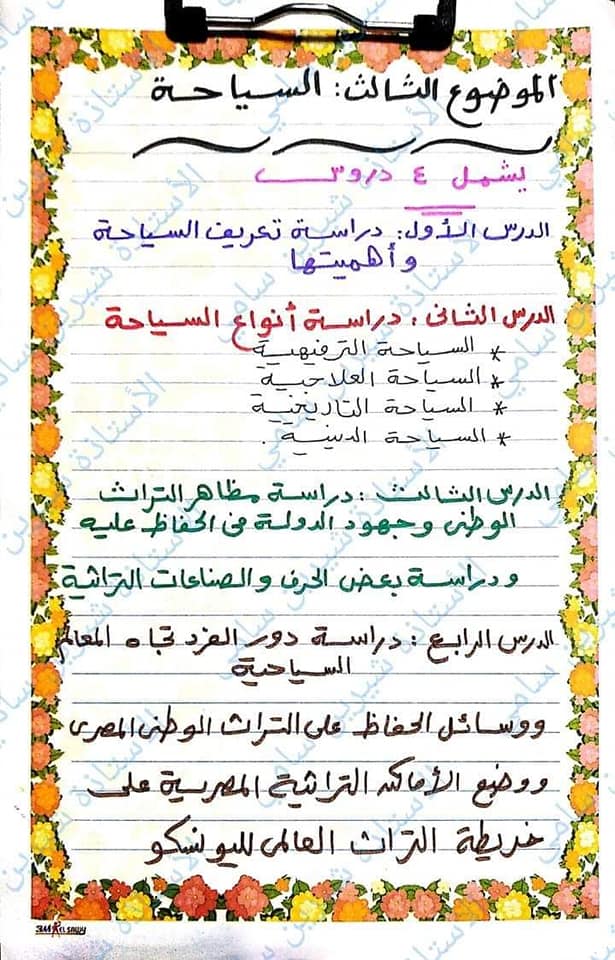 الموضوع الثالث: السياحة
يشمل ٤ دروس
الدرس الأول: دراسة تعريف السياحة
وأهميتها
الدرس الثانى: دراسة أنواع السياحة
* السياحة الترفيهية
* السياحة العلاجية
* السياحة التاريخية
* السياحة الدينية.
الدرس الثالث: دراسة مظاهر التراث
الوطنى وجهود الدولة فى الحفاظ عليه
ودراسة بعض الحرف والصناعات التراثية
الدرس الرابع: دراسة دور الفرد تجاه المعالم
السياحية
ووسائل الحفاظ على التراث الوطنى المصرى
ووضع الأماكن التراثية المصرية على
خريطة التراث العالمى لليونسكو
الأستاذة شيرين سامي